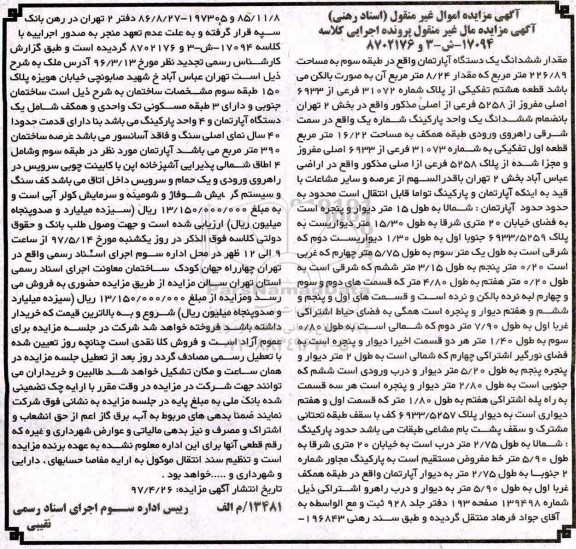 آگهی مزایده اموال غیر منقول (اسناد رهنی)
آگهی مزایده مال غیر منقول پرونده اجرایی کلاسه
۱۷۰۹۴-ش-۳ و ۸۷۰۲۱۷۶
مقدار ششدانگ یک دستگاه آپارتمان واقع در طبقه سوم به مساحت
۲۲۶/۸۹ متر مربع که مقدار ۸/۲۴ متر مربع آن به صورت بالکن می
باشد قطعه هشتم تفکیکی از پلاک شماره ۳۱۰۷۲ فرعی از ۶۹۳۳
اصلی مفروز از ۵۲۵۸ فرعی از اصلی مذکور واقع در بخش ۲ تهران
بانضمام ششدانگ یک واحد پارکینگ شماره یک واقع در سمت
شرقی راهروی ورودی طبقه همکف به مساحت ۱۶/۲۲ متر مربع
قطعه اول تفکیکی به شماره ۳۱۰۷۳ فرعی از ۶۹۳۳ اصلی مفروز
و مجزا شده از پلاک ۵۲۵۸ فرعی ازا صلی مذکور واقع در اراضی
عباس آباد بخش ۲ تهران باقدرالسهم از عرصه و سایر مشاعات با
قید به اینکه آپارتمان و پارکینگ تواما قابل انتقال است محدود به
حدود حدود آپارتمان : شمالا به طول ۱۵ متر دیوار و پنجره است
به فضای خیابان ۲۰ متری شرقا به طول ۱۵/۳۰ متر دیواریست به
پلاک ۶۹۳۳/۵۲۵۹ جنوبا اول به طول ۱/۳۰ دیواریست دوم که
شرقی است به طول یک متر سوم به طول ۵/۷۵ متر چهارم که غربی
است ۰/۲۰ متر پنجم به طول ۳/۱۵ متر ششم که شرقی است به
طول ۰/۲۰ متر هفتم به طول ۴/۸۰ متر که قسمت های دوم و سوم
و چهارم لبه نرده بالکن و نرده است و قسمت های اول و پنجم و
ششم و هفتم دیوار و پنجره است همگی به فضای حیاط اشتراکی
غربا اول به طول ۷/۹۰ متر دوم که شمالی است به طول ۰/۸۰
سوم به طول ۱/۴۰ متر هر دو قسمت اخیرا دیوار و پنجره است به
فضای نورگیر اشتراکی چهارم که شمالی است به طول ۲ متر دیوار و
پنجره پنجم به طول ۵/۲۰ متر دیوار و درب ورودی است ششم که
جنوبی است به طول ۲/۸۰ متر دیوار و پنجره است هر سه قسمت
به راه پله اشتراکی هفتم به طول ۱/۸۰ متر که قسمت اول و هفتم
دیواری است به دیوار پلاک ۶۹۳۳/۵۲۵۷ کف با سقف طبقه تحتانی
مشترک و سقف پشت بام مشاعی طبقات می باشد حدود پارکینگ
: شمالا به طول ۲/۷۵ متر درب است به خیابان ۲۰ متری شرقا به
طول ۵/۹۰ متر خط مفروض مستقیم است به پارکینگ مجاور شماره
۲ جنوبا به طول ۲/۷۵ متر به دیوار آپارتمان واقع در طبقه همکف
غربا اول به طول ۵/۹۰ متر به دیوار و درب راهرو اشتراکی ذیل
شماره ۱۳۹۴۹۸ صفحه ۱۹۳ دفتر جلد ۹۲۸ ثبت و مع الواسطه به
آقای جواد فرهاد منتقل گردیده و طبق سند رهنی ۱۹۶۸۴۳-
۸۵/۱۱/۸ و ۱۹۷۳۰۵-۸۶/۸/۲۷ دفتر ۲ تهران در رهن بانک
سپه قرار گرفته و به علت عدم تعهد منجر به صدور اجراییه با
کلاسه ۱۷۰۹۴-ش-۳ و ۸۷۰۲۱۷۶ گردیده است و طبق گزارش
کارشناس رسمی تجدید نظر مورخ ۹۶/۳/۱۳ آدرس ملک به شرح
ذیل است تهران عباس آباد خ شهید صابونچی خیابان هویزه پلاک
۱۵۰ طبقه سوم مشخصات ساختمان به شرح ذیل است ساختمان
جنوبی و دارای ۳ طبقه مسکونی تک واحدی و همکف شامل یک
دستگاه آپارتمان و ۴ واحد پارکینگ می باشد بنا دارای قدمت حدودا
۴۰ سال نمای اصلی سنگ و فاقد آسانسور می باشد عرصه ساختمان
۳۹۰ متر مربع می باشد آپارتمان مورد نظر در طبقه سوم وشامل
۴ اطاق شمالی پذیرایی آشپزخانه اپن با کابینت چوبی سرویس در
راهروی ورودی و یک حمام و سرویس داخل اتاق می باشد کف سنگ
و سیستم گرمایش شوفاژ و شومینه و سرمایش کولر آبی است و
به مبلغ ۱۳/۱۵۰/۰۰۰/۰۰۰ ریال (سیزده میلیارد و صدوپنجاه
میلیون ریال) ارزیابی شده است و جهت وصول طلب بانک و حقوق
دولتی کلاسه فوق الذکر در روز یکشنبه مورخ ۹۷/۵/۱۴ از ساعت
۹ الی ۱۲ ظهر در محل اداره سوم اجرای اسناد رسمی واقع در
تهران چهارراه جهان کودک ساختمان معاونت اجرای اسناد رسمی
استان تهران سالن مزایده از طریق مزایده حضوری به فروش می
رسد ومزایده از مبلغ ۱۳/۱۵۰/۰۰۰/۰۰۰ ریال (سیزده میلیارد
و صدوپنجاه میلیون ریال) شروع و به بالاترین قیمت که خریدار
داشته باشد فروخته خواهد شد شرکت در جلسه مزایده برای
عموم آزاد است و فروش کلا نقدی است چنانچه روز تعیین شده
با تعطیل رسمی مصادف گردد روز بعد از تعطیل جلسه مزایده در
همان ساعت و مکان تشکیل خواهد شد طالبین و خریداران می
توانند جهت شرکت در مزایده در وقت مقرر با ارایه چک تضمینی
شده بانک ملی به مبلغ پایه در جلسه مزایده به نشانی فوق شرکت
نمایند ضمنا بدهی های مربوط به آب، برق گاز اعم از حق انشعاب و
اشتراک و مصرف و نیز بدهی مالیاتی و عوارض شهرداری و غیره که
رقم قطعی آنها برای این اداره معلوم نشده به عهده برنده مزایده
است و تنظیم سند انتقال موکول به ارایه مفاصا حسابهای، دارایی
و شهرداری و .....خواهد بود .
تاریخ انتشار آگهی مزایده: ۹۷/۴/۲۶
۱۳۴۸۱/م الف رییس اداره سوم اجرای اسناد رسمی
نقیبی